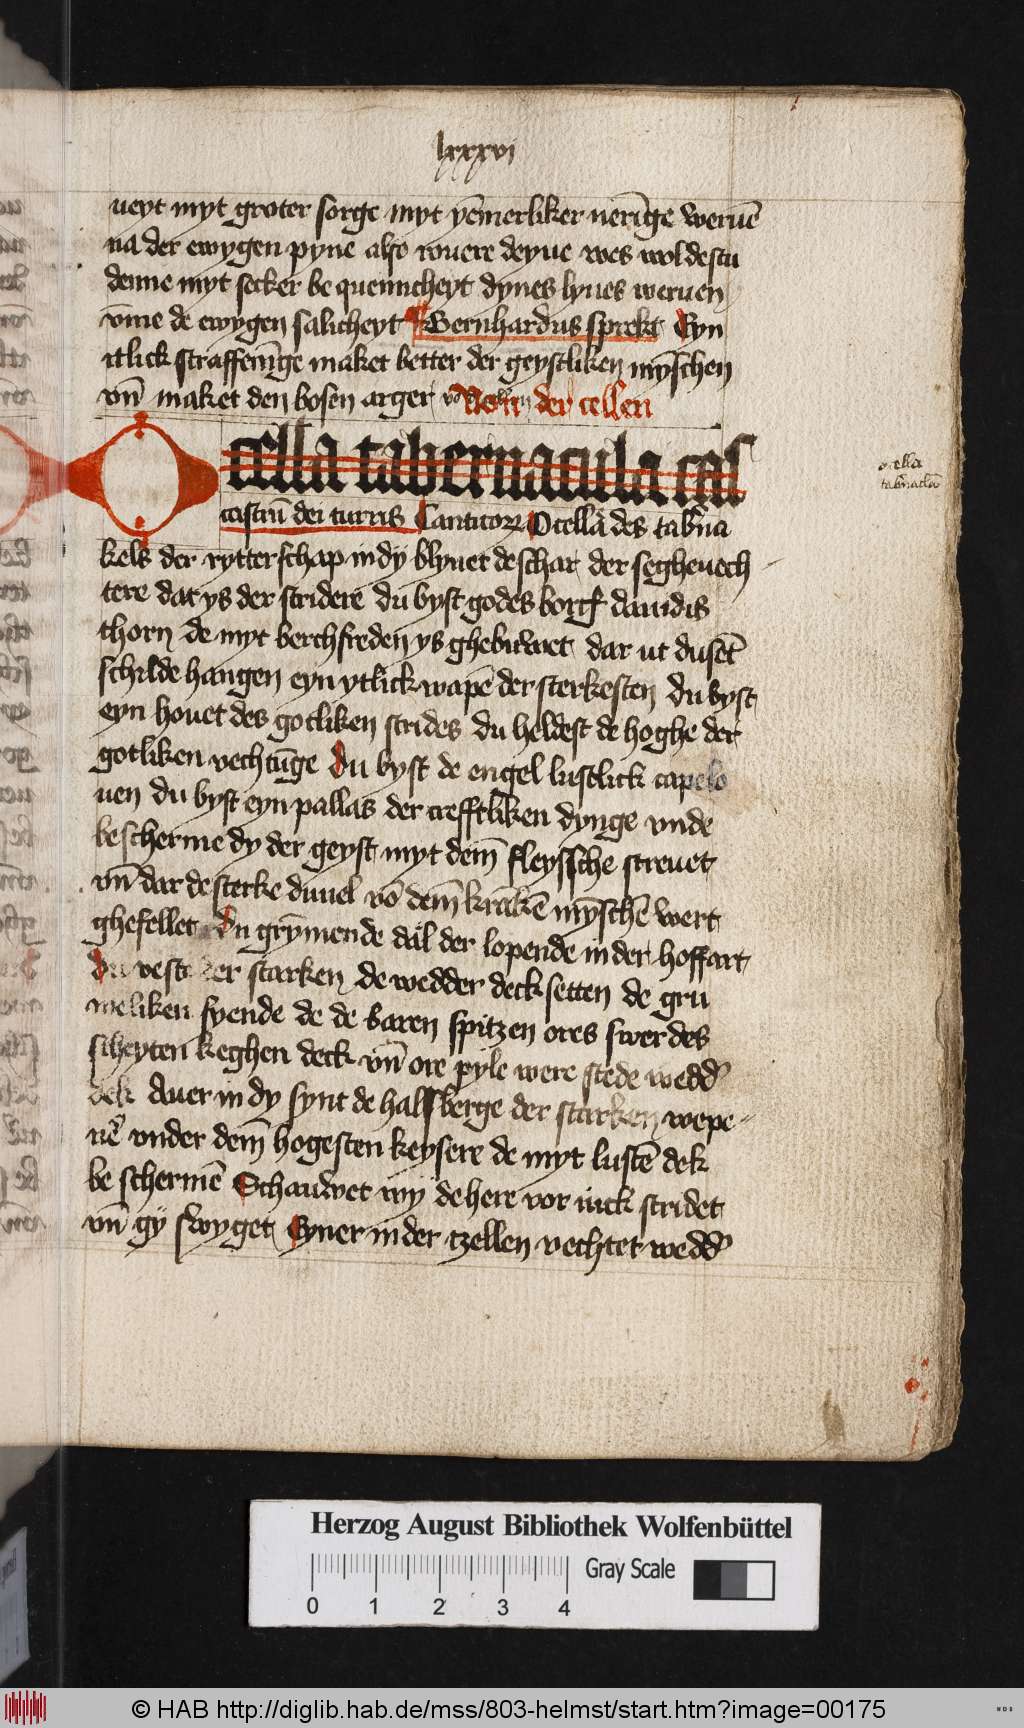 lxxxvi
ueyt myt groter sorge myt yēmerliker nerīge weruē
na der ewygen pyne also rouere deyue wes woldestu
denne myt secker be quemicheyt dynes lyues weruen
vm̄e de ewygen salicheyt Bernhardus sprekt Eyn
itlick straffenīge maket better der geystliken mȳschen
vn̄ maket den bosen arger Von der cellen
O cella tabernacula cas
castrū dei turris Canticorum O cellā des tab̄na
kels der rytterschap in dy blyuet de schar der segheuech
tere dat ys der striderē du byst godes borch dauidis
thorn de myt berchfreden ys ghebuwet dar ut dusēt
schilde hangen eyn ytlick wapē der sterkesten du byst
eyn houet des gotliken strides du heldest de hoghe der
gotliken vechtūge Du byst de engel lustlick capelo
uen du byst eyn pallas der trefftliken dynge vnde
bescherme dy der geyst myt dem̄ fleyssche streuet
vn̄ dar de sterke duuel vō dem̄ krākē mȳschē wert
ghefellet du grȳmende dal der lopende in der hoffart
Du veste der starken de wedder deck setten de gru
weliken syende de de baren spitzen ores swerdes
scheyten keghen deck vn̄ ore pyle were stede wedd'
dek Auer in dy synt de halsberge der starken wepe
nē vnder dem̄ hogesten keysere de myt lustē dek
be schermē Schauwet wy de here vor iuck stridet
vn̄ gy swyget Eyner in der tzellen vechtet wedd'
o cella
tab̄nacla
Herzog August Bibliothek Wolfenbüttel
Gray Scale
0 1 2 3 4
© HAB http://diglib.hab.de/mss/803-helmst/start.htm?image=00175